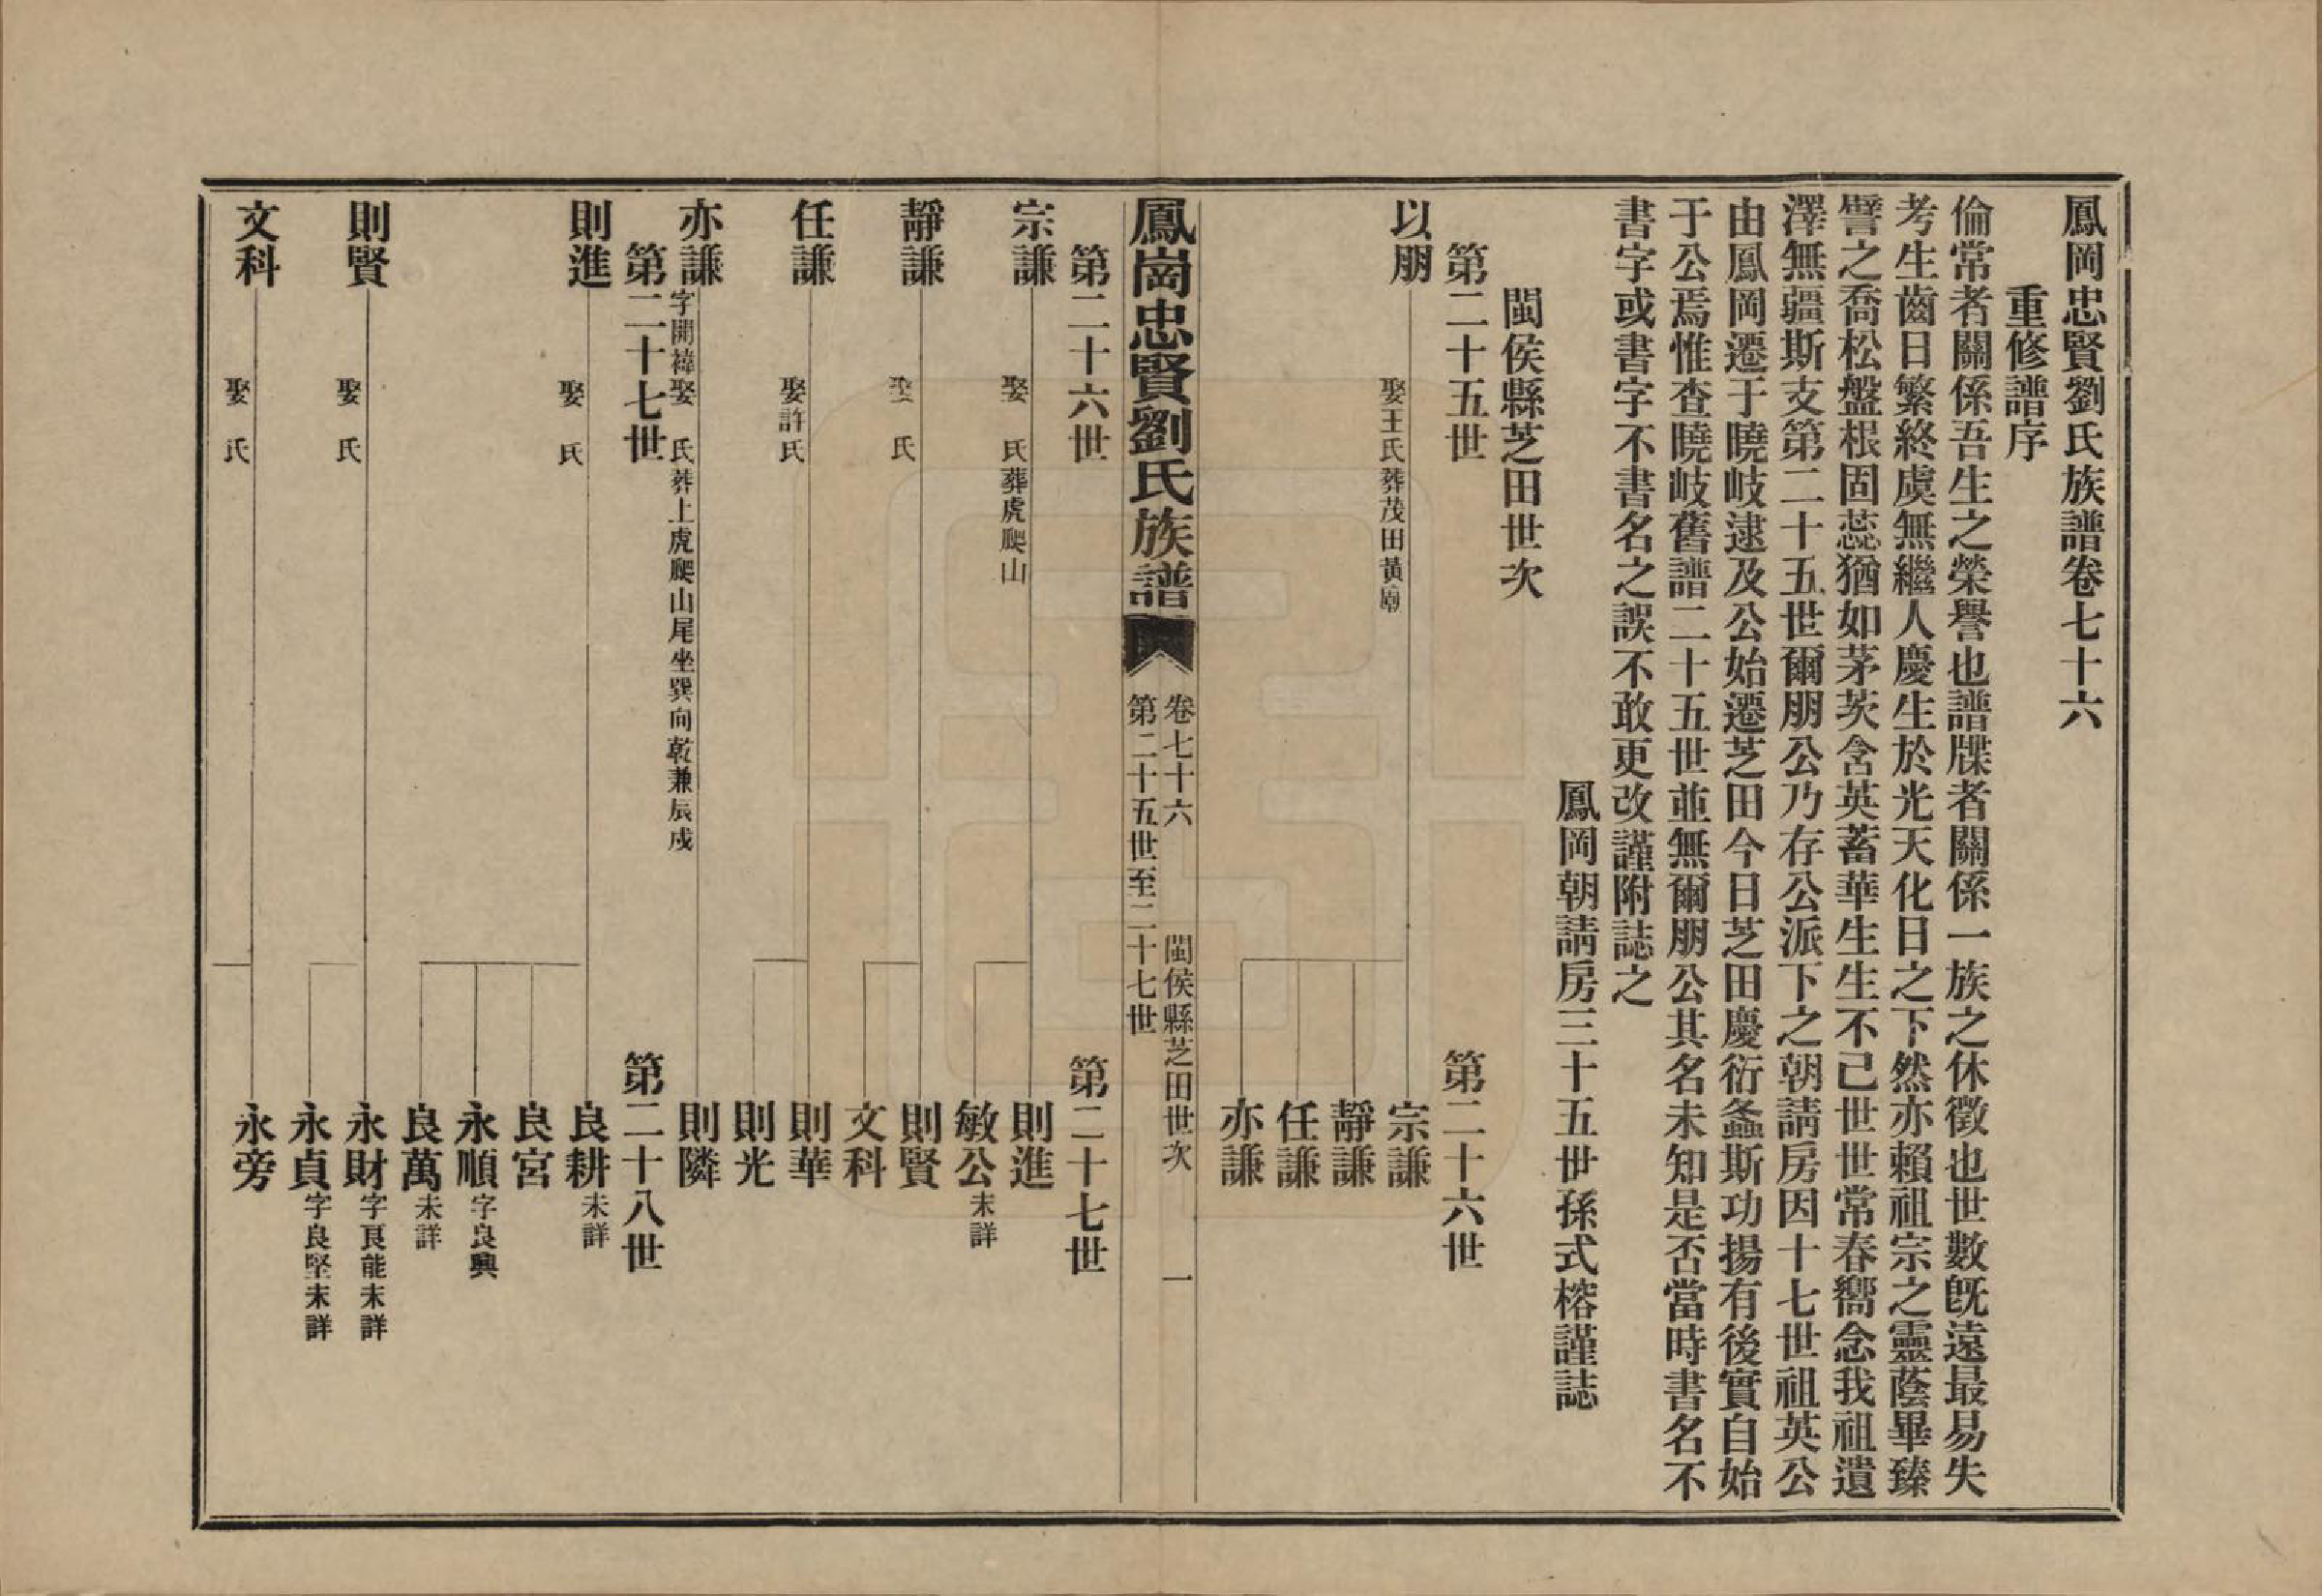 鳳岡忠賢劉氏族譜卷七十六
重修譜序
倫常者關係吾生之榮譽也譜牒者關係一族之休徵也世數旣遠最易失
考生齒日繁終虞無繼人慶生於光天化日之下然亦賴祖宗之靈蔭畢臻
譬之喬松盤根固蕊猶如茅茨含英蓄華生生不已世世常春嚮念我祖遺
澤無疆斯支第二十五世爾朋公乃存公派下之朝請房因十七世祖英公
由鳳岡遷于曉岐逮及公始遷芝田今日芝田慶衍螽斯功揚有後實自始
于公焉惟查曉岐舊譜二十五世並無爾朋公其名未知是否當時書名不
書字或書字不書名之誤不敢更改謹附誌之
鳳岡朝請房三十五世孫式榕謹誌
閩侯縣芝田世次
第二十五世 第二十六世
以朋 娶王氏葬茂田黃廟 宗謙
靜謙
任謙
亦謙
鳳崗忠賢劉氏族譜 卷七十六 閩侯縣芝田世次 一
第二十五世至二十七世
第二十六世 第二十七世
宗謙 娶 氏葬虎爬山 則進
敏公 未詳
靜謙 娶 氏 則賢
文科
任謙 娶許氏 則華
則光
亦謙 字開禕娶 氏葬上虎爬山尾坐巽向乾兼辰戌 則隣
第二十七世 第二十八世
則進 娶 氏 良耕 未詳
良宮
永順 字良興
良萬 未詳
則賢 娶 氏 永財 字良能未詳
永貞 字良堅未詳
文科 娶 氏 永旁